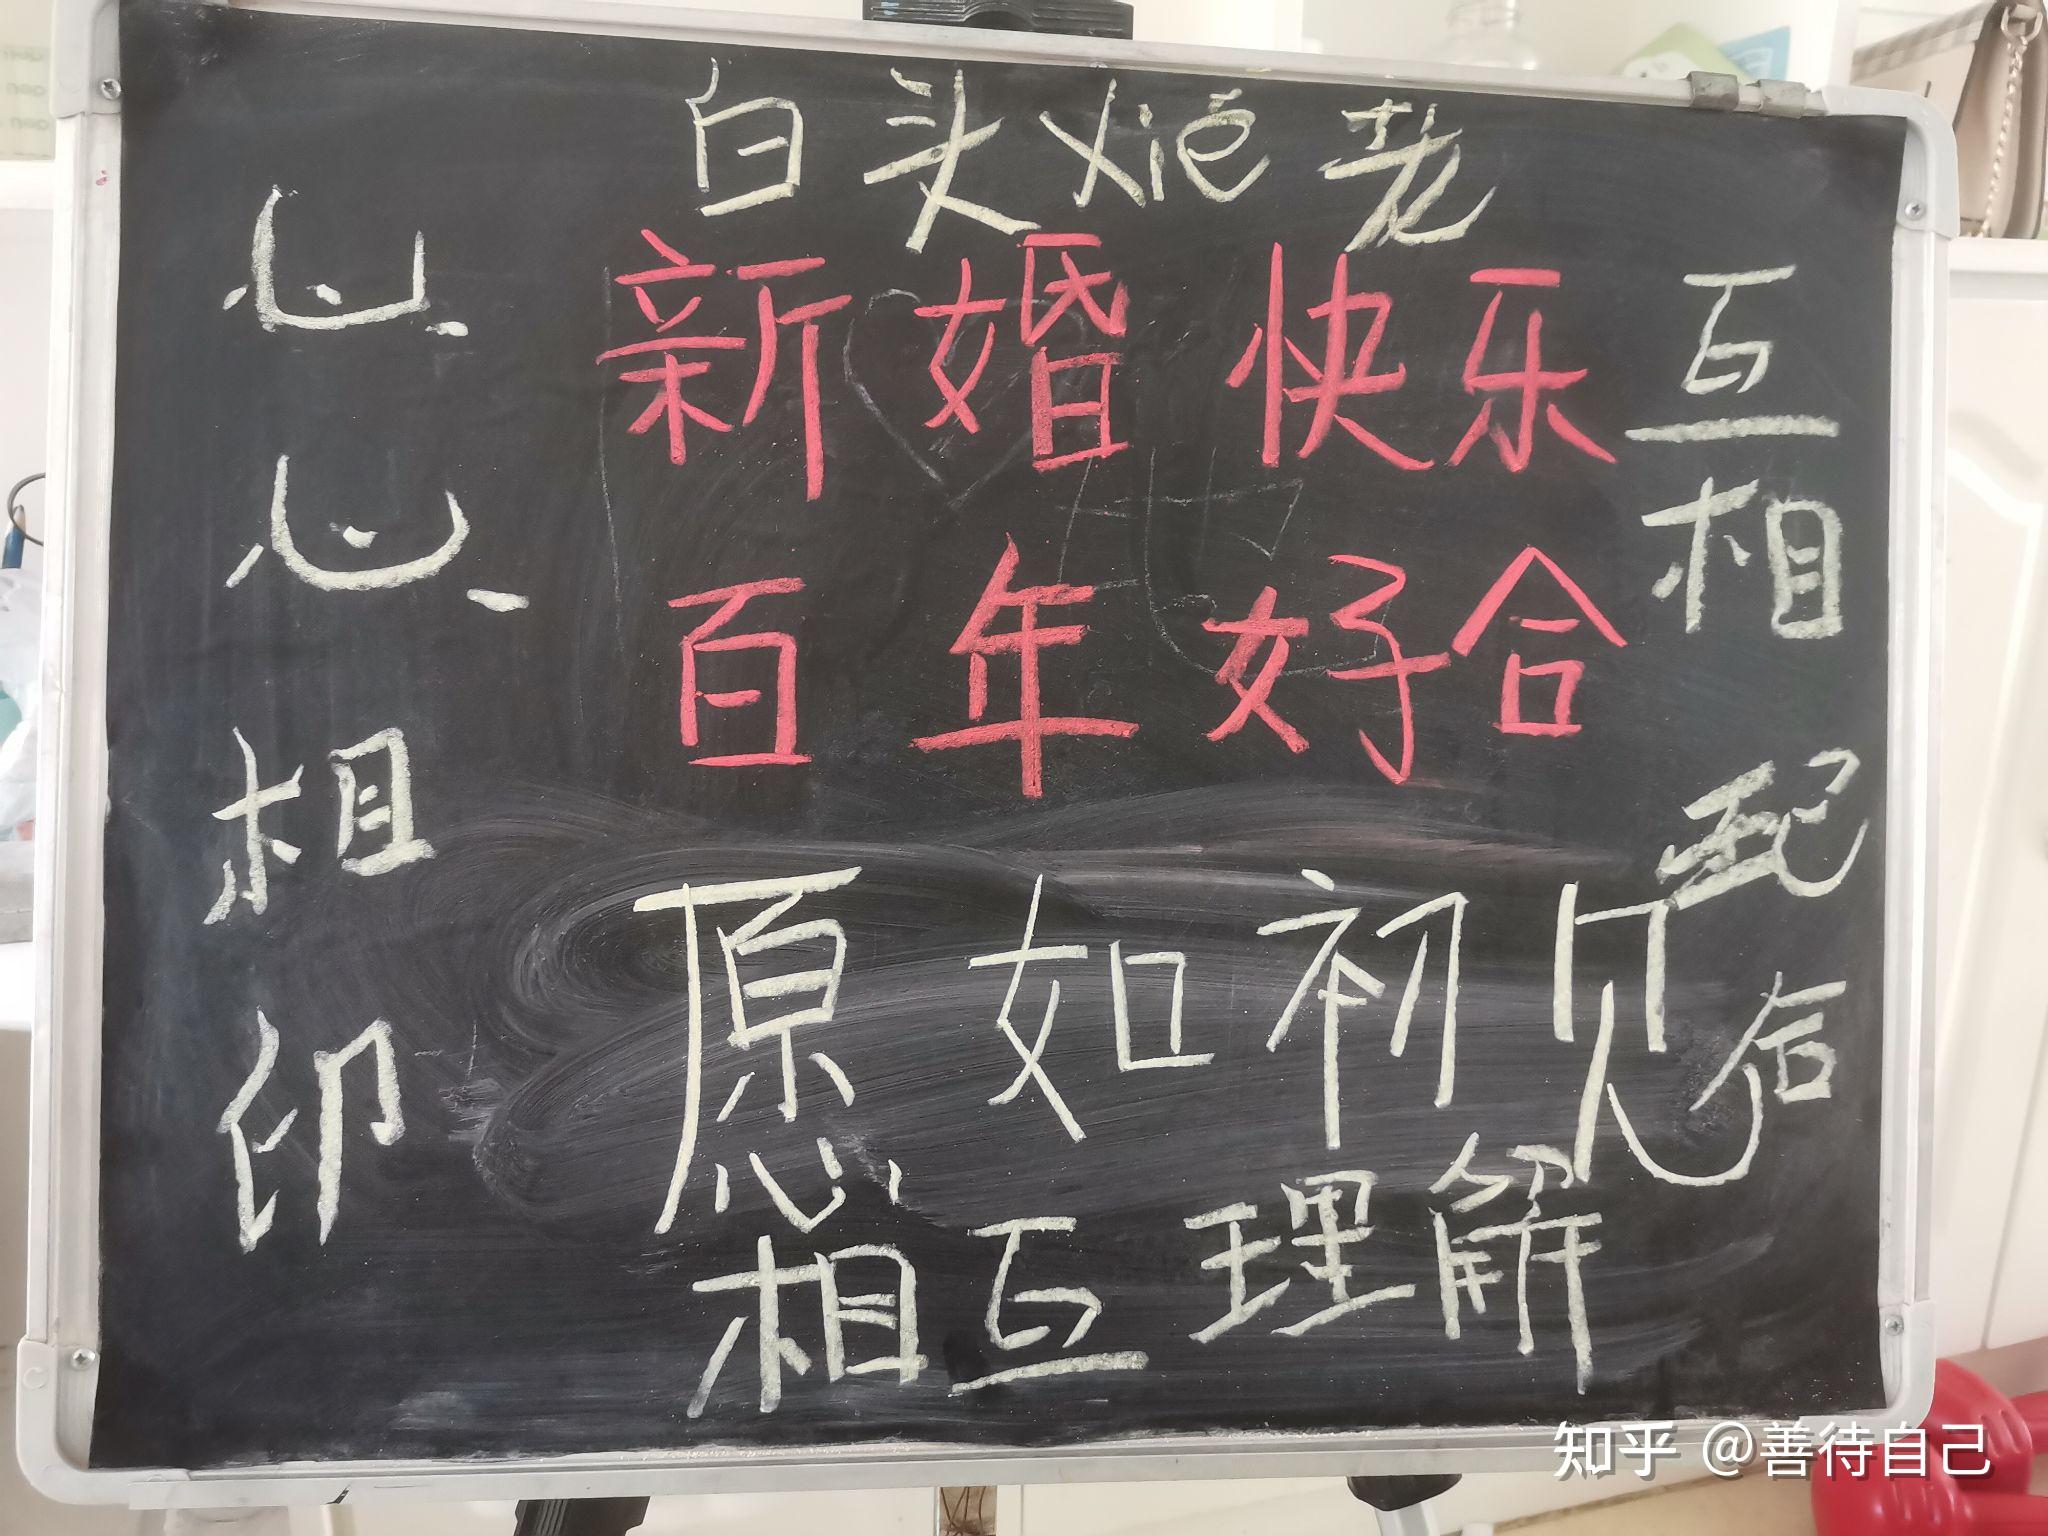 白头xie老
新婚快乐
百年好合
愿如初见
相互理解
心心相印
互相配合
知乎 @善待自己